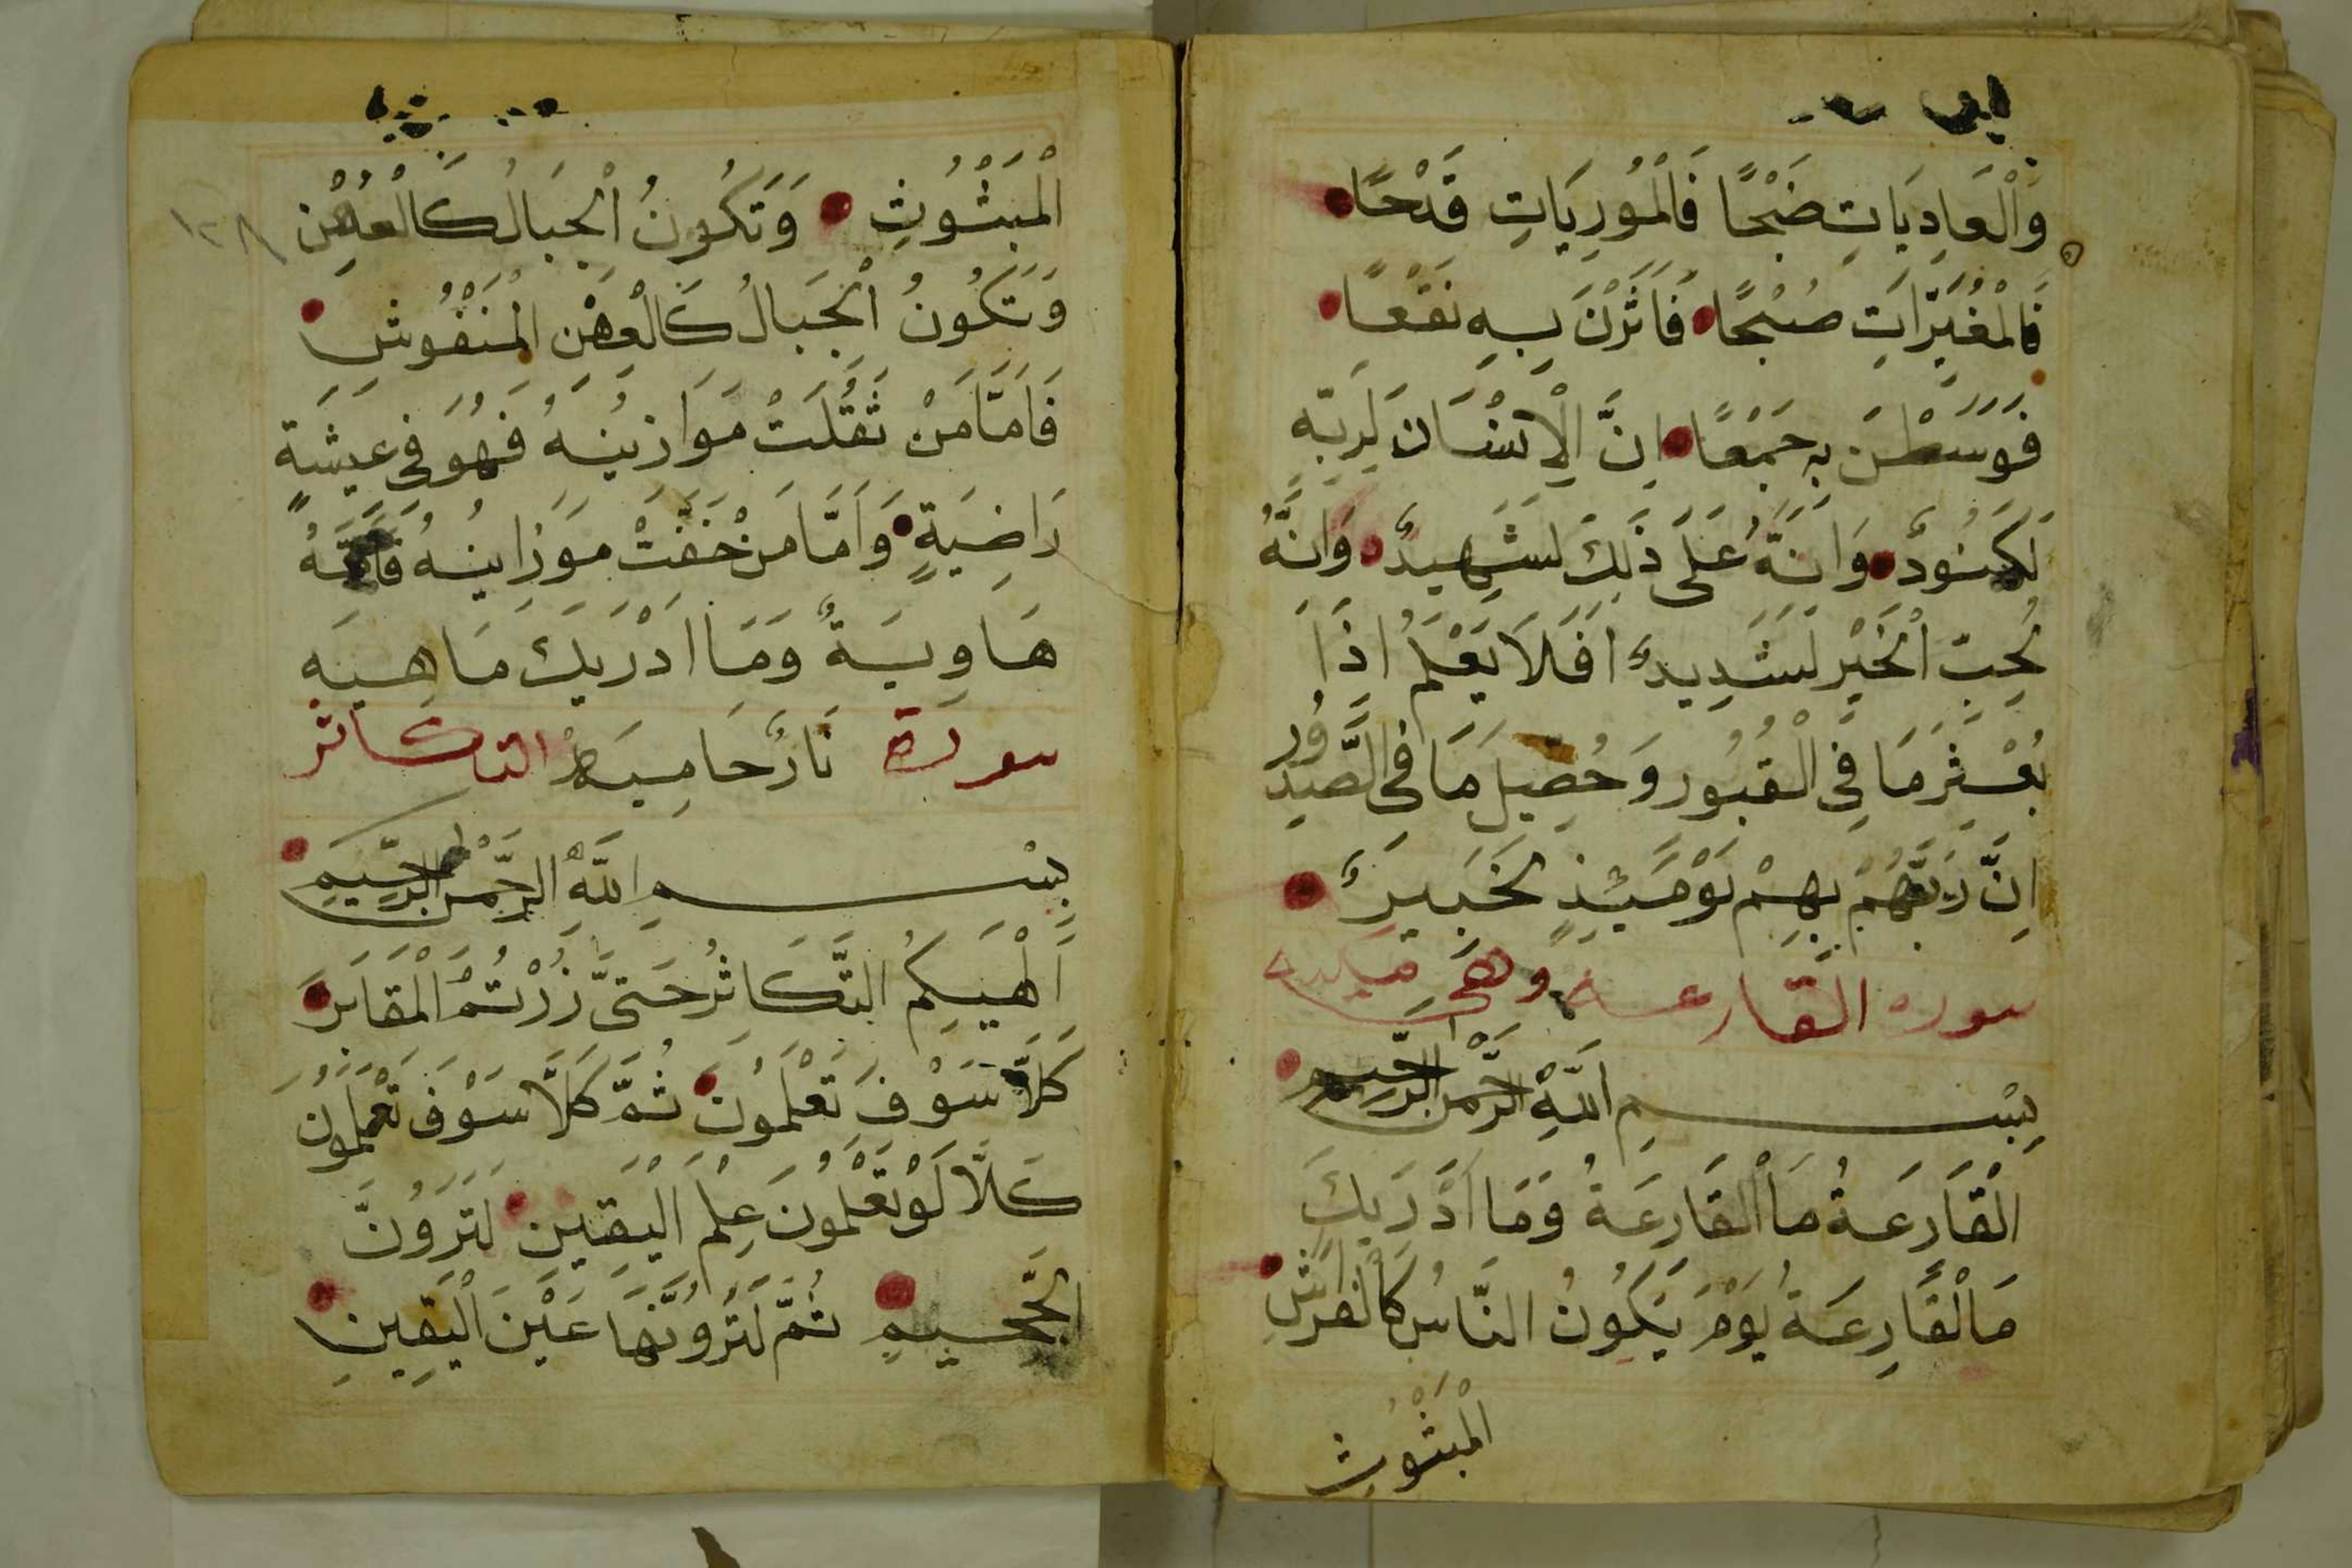 وَالْعَادِيَاتِ ضَبْحًا فَالْمُورِيَاتِ قَدْحًا
فَالْمُغيَرّاتِ صُبْحًا فَاَثَرْنَ بِهِ نَقْعًا
فَوَسَطْنَ بِهِ جَمْعًا اِنَّ الْاِنْسَانَ لِرَبِّهِ
لَكَنُودٌ وَاِنَّهُ عَلَى ذَلِكَ لَشَهِيدٌ وَاِنَّهُ
لُحِبِّ الْخَيْرِ لَشَدِيدٌ اَفَلَا يَعْلَمُ اِذَا
بُعْثِرَ مَا فِي الْقُبُورِ وَحُصِيلَ مَا فِي الصُّدُورِ
اِنَّ رَبَّهُمْ بِهِمْ يَوْمَئِذٍ لَخَبِيرٌ
سوره القارعة وهى مكيه
بِسْمِ اللَّهِ الرَّحْمنِ الرَّحِيمِ
الْقَارِعَةُ مَا الْقَارِعَةُ وَمَا اَدْرَيكَ
مَالْقَارِعَةُ يَوْمَ يَكُونُ النَّاسُ كَالْفَرَاشِ
الْمَبْثُوثِ
١٢٨
الْمَبْثُوثِ وَتَكُونُ الْجِبَالُ كَالْعِهْنِ
وَتَكُونُ الْجِبَالُ كَالْعِهْنِ الْمَنْفُوشِ
فَاَمَّا مَنْ ثَقُلَتْ مَوَازِينُهُ فَهُوَ فِى عِيشَةٍ
رَاضِيَةٍ وَاَمَّا مَنْ خَفَّتْ مَوَزاينُهُ فَاُمُّهُ
هَاوِيَةٌ وَمَا اَدْرَيكَ مَاهِيَه
سورة نَارٌ حَامِيَة التكاثر
بِسْمِ اللَّهِ الرَّحْمنِ الرَّحِيمِ
اَلْهَيكُمُ التَّكَاثُرُ حَتىَّ زُرْتُمُ الْمَقَابِرَ
كَلَّا سَوْفَ تَعْلَمُونَ ثُمَّ كَلَّا سَوْفَ تَعْلَمُونَ
كَلَّا لَوْ تَعْلَمُونَ عِلْمَ الْيَقِينِ لَتَرَوُنَّ
الْجَحِيمِ ثُمَّ لَتَرَوُنَّهَا عَيْنَ الْيَقِينِ